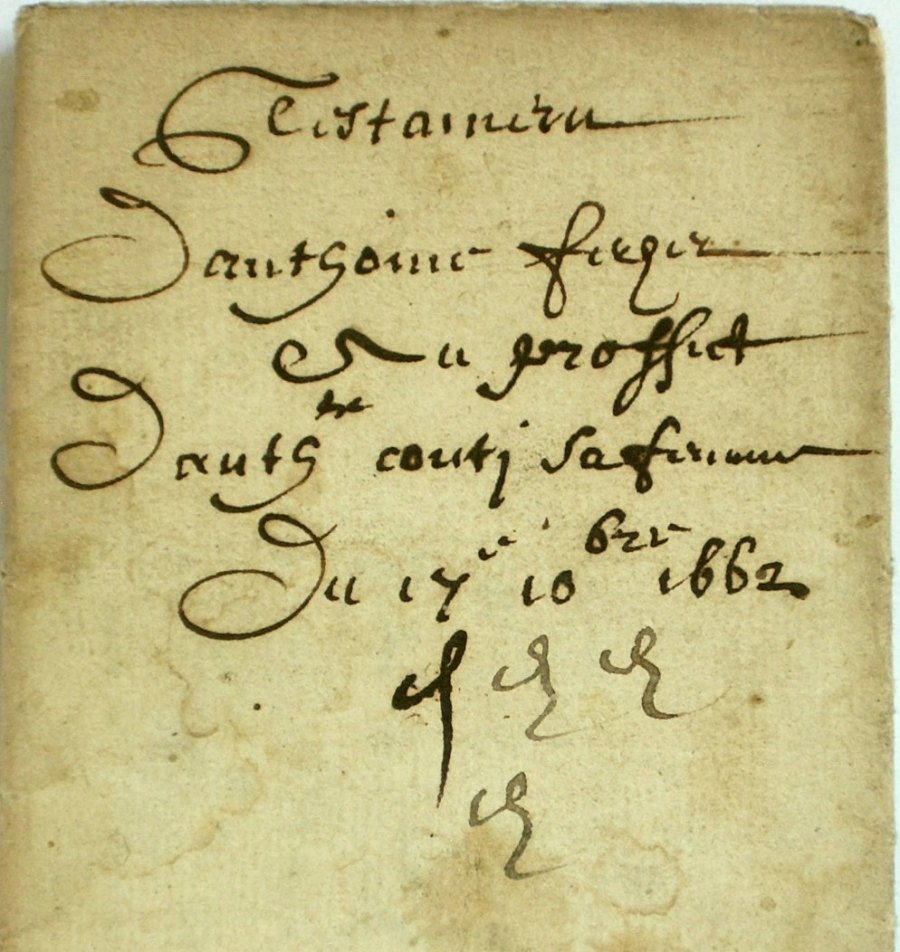 Testament
Danthoine fieger
Au proffict
Danth^ne couti sa femme
Du 17^e 10^bre 1662